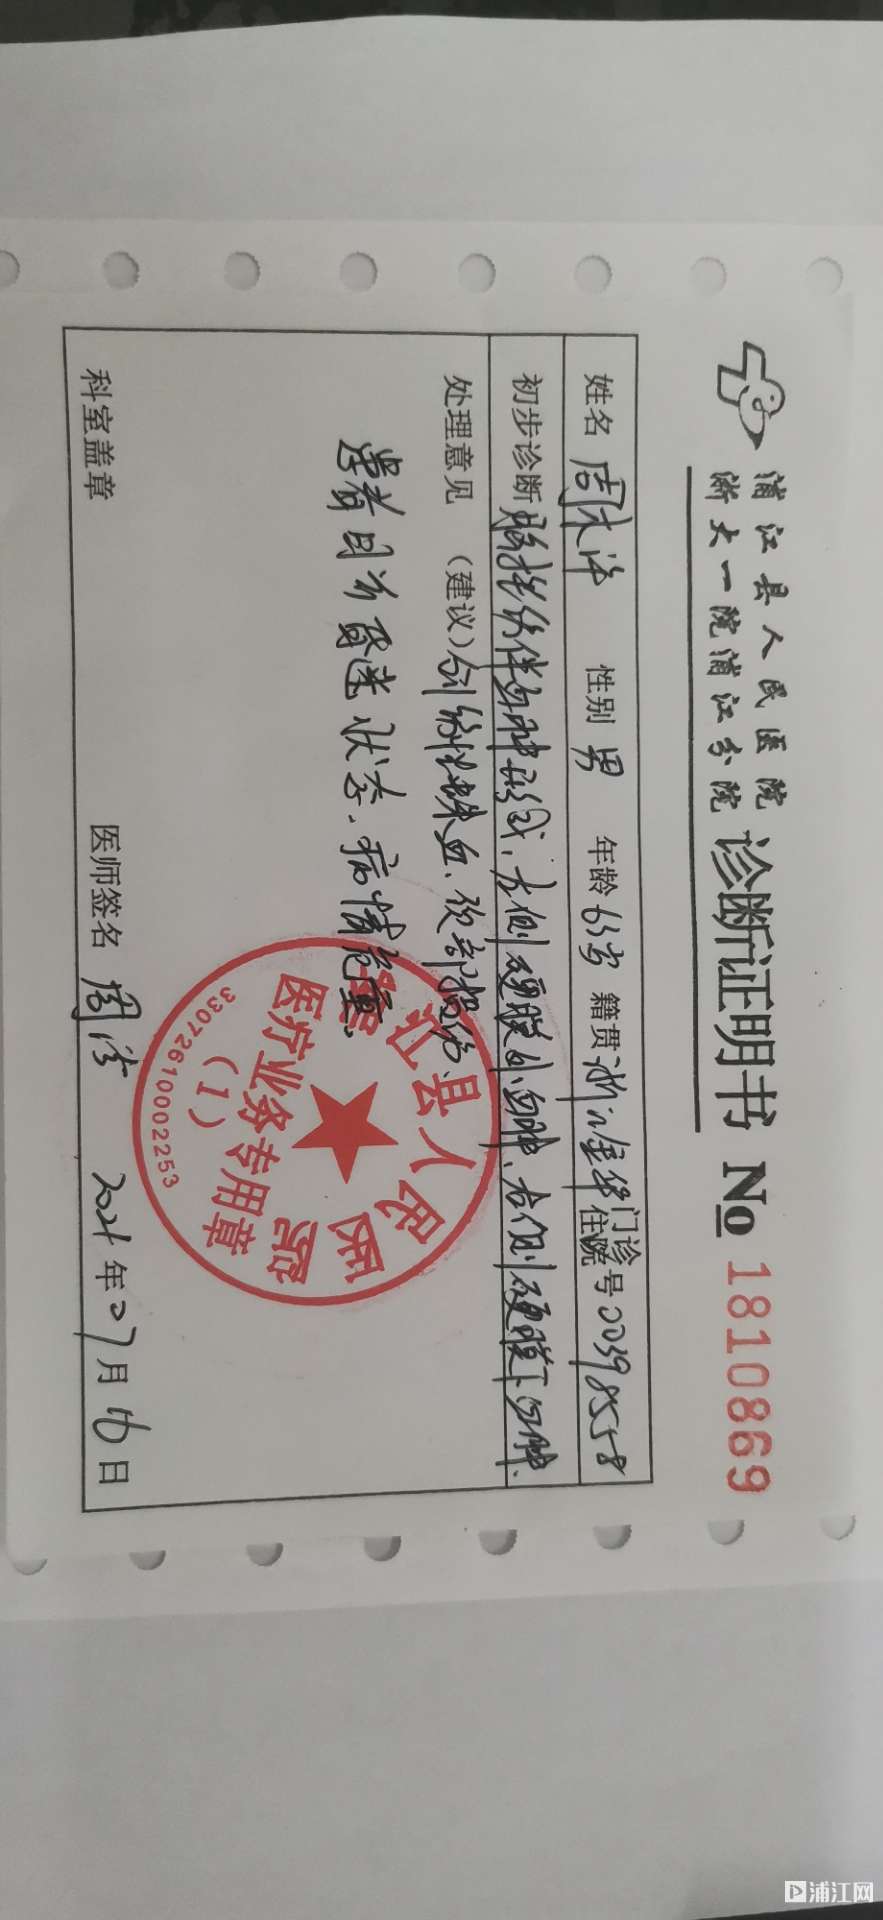 浦江县人民医院
浙大一院浦江分院
诊断证明书 No 1810869
姓名 周 性别 男 年龄 63岁 籍贯 浙江金华 门诊住院号 00398558
初步诊断 脑挫伤伴血肿形成、左侧硬膜外血肿、右侧硬膜下血肿、
处理意见（建议） 创伤性蛛血、颈部损伤、
患者目前昏迷状态、病情危重。
科室盖章 医师签名 周 2021年07月16日
浦江县人民医院
医疗业务专用章
（1）
33072610002253
浦江网